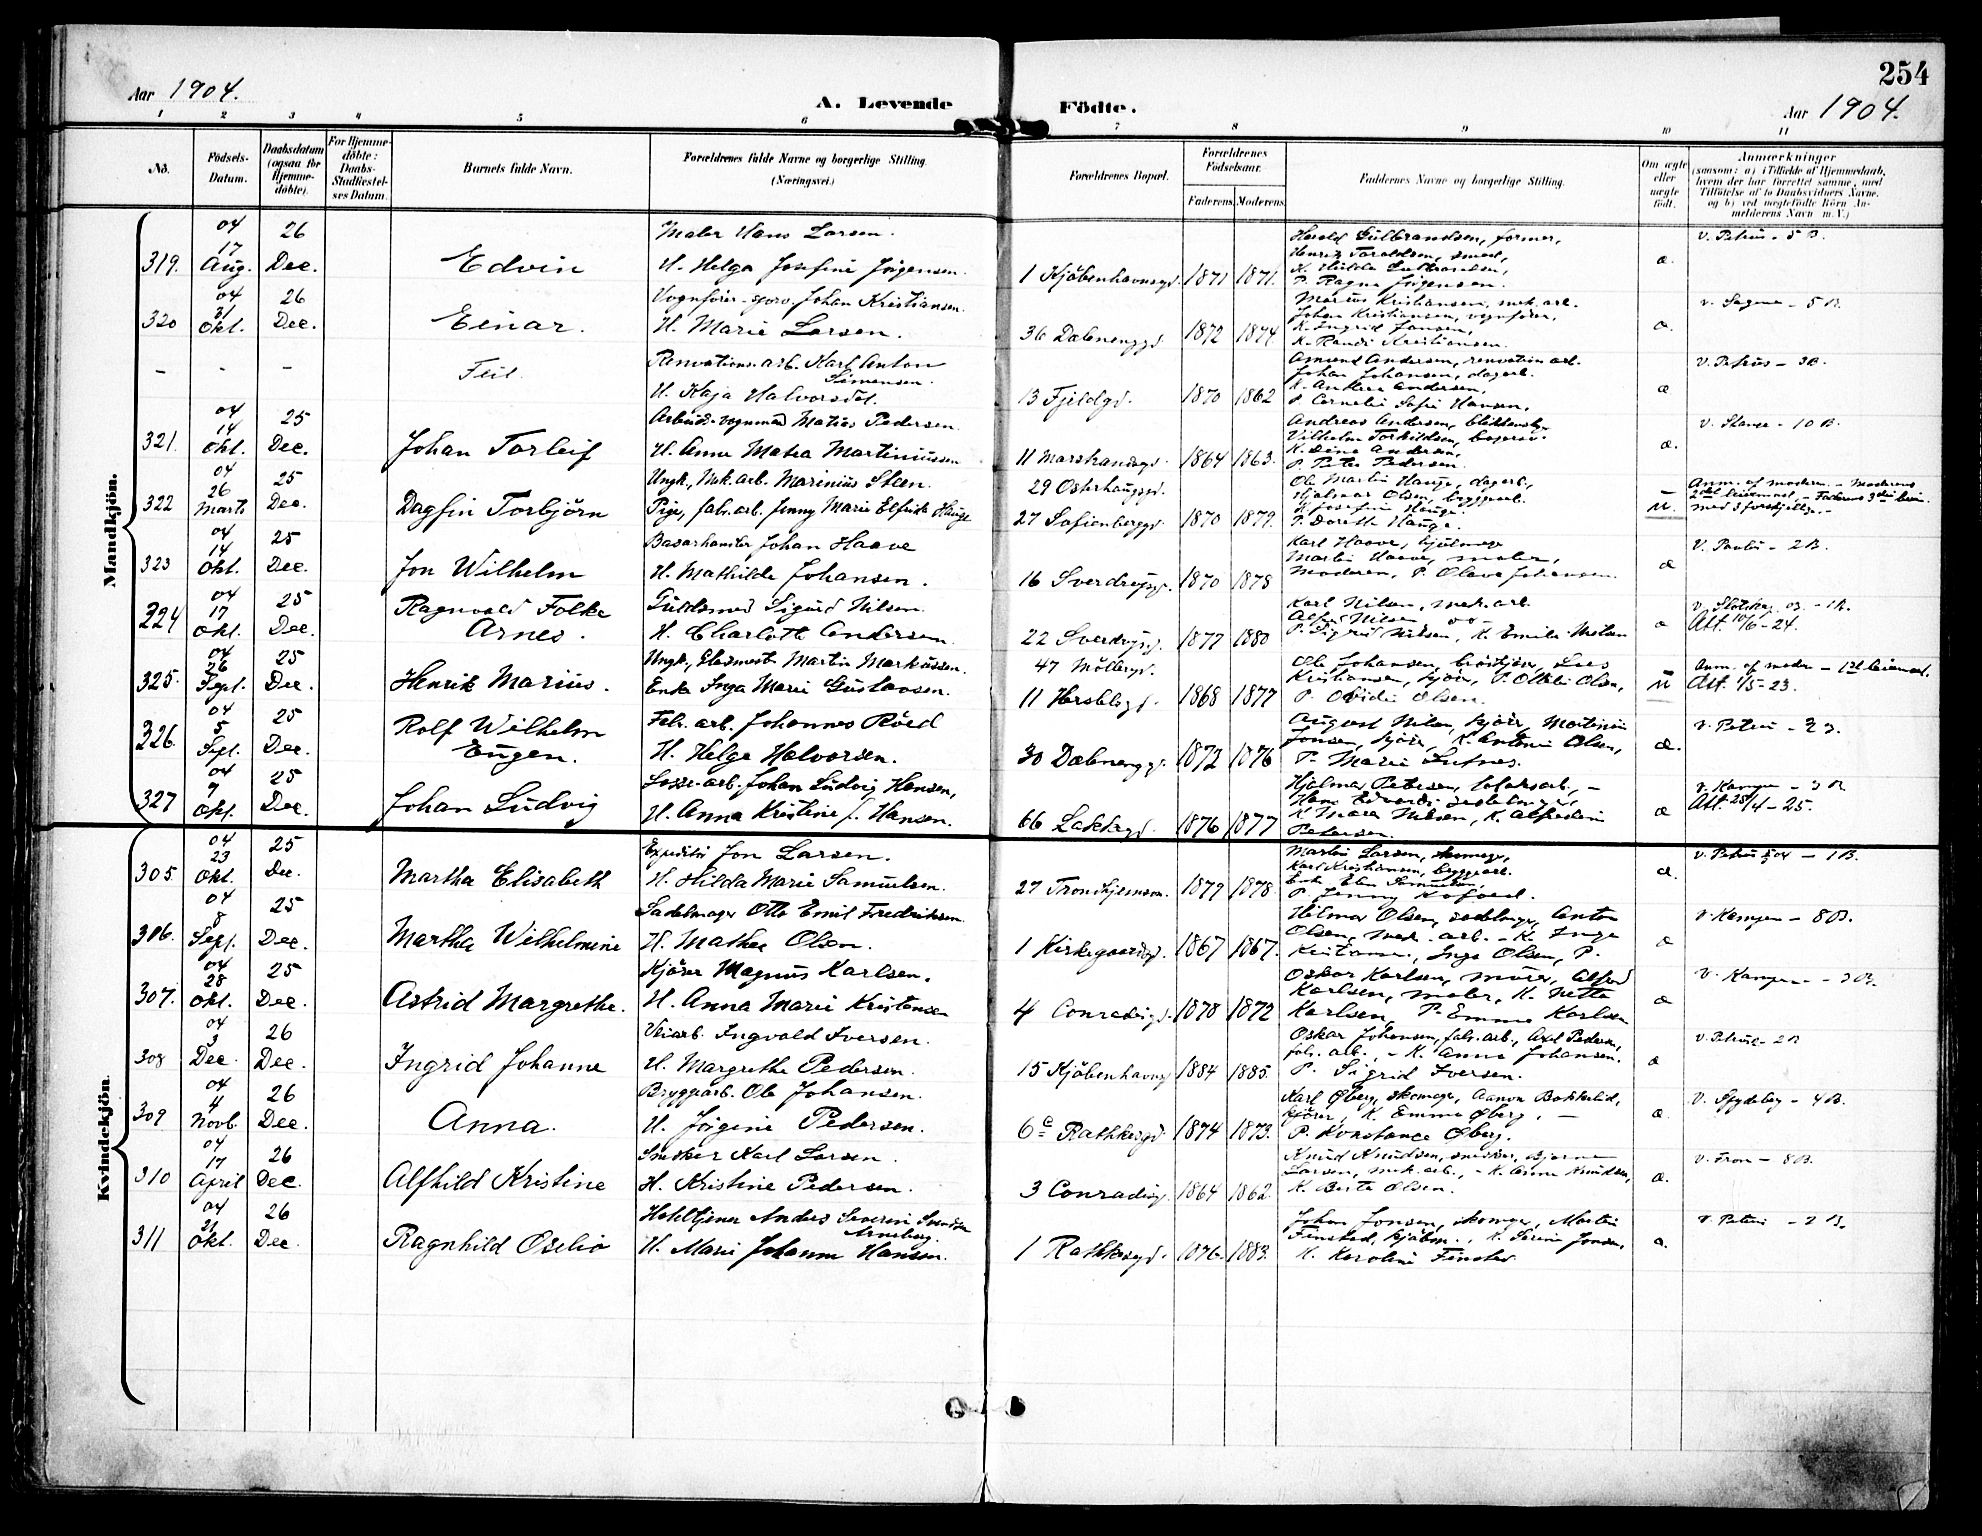 254
Aar 1904.
A. Levende Födte.
Aar 1904.
1 2 3 4 5 6 7 8 9 10 11
No.
Födsels-Datum.
Daabsdatum (ogsaa for Hjemme-döbte).
For Hjemme-döbte: Daabs-Stadfæstelses Datum.
Barnets fulde Navn.
Forældrenes fulde Navne og borgerlige Stilling. (Næringsvei.)
Forældrenes Bopæl.
Forældrenes Födselsaar.
Faderens. Moderens.
Faddernes Navne og borgerlige Stilling.
Om ægte eller uægte födt.
Anmærkninger (saasom: a) i Tilfælde af Hjemmedaab, hvem der har forrettet samme, med Tilföielse af to Daabsvidners Navne, og b) ved uægtefödte Börn Anmelderens Navn m. V.)
Mandkjön.
319. 04 17 Aug. 26 Dec. Edvin
Maler Hans Larsen.
H. Helga Josefine Jörgensen.
1 Kjöbenhavnsgd. 1871 1871.
Harald Gulbrandsen, former,
P. Ragna Jörgensen.
æ.
v. Petrus - 5 B.
320 04 31 Okt. 26 Dec. Einar.
Vognfører - sporv. Johan Kristiansen.
H. Marie Larsen.
36 Dælenenggd. 1872 1874.
Marius Kristiansen, mek. arb.
Johan Kristiansen, vognfører,
K. Ingrid Jansen,
K. Randi Kristiansen.
æ.
v. Sagene - 5 B.
- - - Feil.
Renovations. arb. Karl Anton Simensen.
H. Kaja Halvorsdt.
13 Fjeldgd. 1870 1862
Amund Andersen, renovations arb.
Johan Johansen, dagarb.
K. Andrea Andersen,
P Cornelie Sofie Hansen.
æ
v. Petrus - 3 B.
321. 04 14 Okt. 25 Dec. Johan Torleif
Arbeids-vognmand Matias Pedersen.
H. Anna Matea Martiniussen
11 Marstrandsgd. 1864 1863.
Vilhelm Torkildsen,
K. Dina Andersen,
P. Peter Pedersen.
æ.
10 B.
322 04 26 Marts 25 Dec. Dagfin Torbjörn
Ungk., Mek. arb. Marinius Steen.
Pige, fab. arb. Jenny Marie Elfrida Hauge
29 Osterhausgd.
27 Sofienberggd. 1870 1879.
Ole Martin Hauge, dagarb,
Hjalmar Olsen, bryggearb.
K. Josefine Hauge.
P. Dorethe Hauge.
u.
Anm. af moderen - Moderens
2det leiermaal, - Faderens 3die leierm.
med 3 forskjellige.
323 04 14 Okt. 25 Dec. Jon Wilhelm
Basarhandler Johan Haave
H. Mathilde Johansen.
16 Sverdrupsgd. 1870 1878
Karl Haave, hjulmager
Martin Haave, maler,
Moderen, P. Olava Johansen.
æ
v. Paulus - 2 B.
324 04 17 Okt. 25 Dec. Ragnvald Folke
Arnes.
Guldsmed Sigurd Nilsen.
H. Charlotte Andersen.
22 Sverdrupsgd. 1877 1880
Karl Nilsen, mek. arb.
Alfred Nilsen -"-
P. Sigrid Nilsen, K. Emilie Nielsen
æ
1 B.
Att. 10/6 - 24.
325. 04 26 Sept. 25 Dec. Henrik Marius.
Ungk., Martin Markussen.
Enke Inga Marie Gustavsen.
47 Möllergd.
11 Herslebsgd. 1868 1877
Ole Johansen,
Kristiansen, kjører, P. Ottilie Olsen,
P. Ovidia Olsen.
u
Anm. af moder - 1ste leiermaal.
Att. 1/5 - 23.
326. 04 5 Sept. 25 Dec. Rolf Wilhelm
Eugen.
Fab. arb. Johannes Röed
H. Helga Halvorsen.
30 Dælenenggd. 1872 1876
August Nilsen, kjører, Martinius
Jonsen, kjører, K. Antonie Olsen,
P. Marie Lufnes.
æ.
v. Petrus - 2 B.
327 04 9 Okt. 25 Dec. Johan Ludvig
Losse-arb. Johan Ludvig Hansen,
H. Anna Kristine f. Hansen.
66 Lakkegd. 1876 1877
Hjalmar Petersen, -
Hans Edvardsen
K. Nilsen, K. Alfredine
Petersen.
æ
v. Kampen - 3 B
Att. 25/4 - 25.
Kvindekjön.
305 04 23 Okt. 25 Dec. Martha Elisabeth
Expeditör Jon Larsen.
H. Hilda Marie Samuelsen.
27 Trondhjemsvn. 1879 1878.
Martin Larsen, skomager,
Karl Kristiansen, bryggearb.
P. Jenny Kofoed.
æ.
v. Petrus 5/04 - 1 B.
306. 04 8 Sept. 25 Dec. Martha Wilhelmine
Sadelmager Otto Emil Fredriksen
H. Mathea Olsen.
1 Kirkegaardsgd. 1867 1867.
Hilmar Olsen, sadelmager, Anton
Olsen, mek. arb. - K. Inga
Kristiansen, Inga Olsen, P.
æ
v. Kampen - 8 B.
307. 04 28 Okt. 25 Dec. Astrid Margrethe.
Kjörer Magnus Karlsen.
H. Anna Marie Kristensen
4 Conradisgd. 1878 1872
Oskar Karlsen, murer, Alfred
Karlsen, maler, K. Netta
Karlsen, P. Emma Karlsen
æ
v. Kampen - 3 B.
308 04 3 Dec. 26 Dec. Ingrid Johanne
Veiarb. Ingvald Iversen.
H. Margrethe Pedersen.
15 Kjöbenhavnsgd 1884 1885.
Oskar Johansen, fab. arb., Axel Pedersen,
fab. arb., - K. Anna Johansen.
P. Sigrid Iversen.
æ
v. Petrus - 2 B
309 04 4 Novb. 26 Dec. Anna.
Bryggearb. Ole Johansen.
H. Jörgine Pedersen.
6 c Rathkesgd. 1874 1873.
Karl Øberg, skomager, Aanon Bakkelid,
kjører, K. Emma Øberg, -
P. Konstance Øberg.
æ.
v. Spydeberg - 4 B.
310 04 17 April 26 Dec. Alfhild Kristine
Snekker Karl Larsen.
H. Kristine Pedersen.
3 Conradisgd. 1864 1862.
Knud Knudsen, snekker, Bjarne
Larsen, mek. arb., - K. Anne Knudsen,
K. Berte Olsen.
æ.
v. Tron - 8 B.
311 04 21 Okt. 26 Dec. Ragnhild Oselio
Hoteltjener Anders Severin Svendsen
Arneberg.
H. Marie Johanne Hansen.
1 Rathkesgd. 1876. 1883.
Johan Jonsen, skomager, Martin
Finstad, kjøbm., K. Serine Jonsen,
K. Karoline Finstad
æ.
v. Petrus - 2 B.